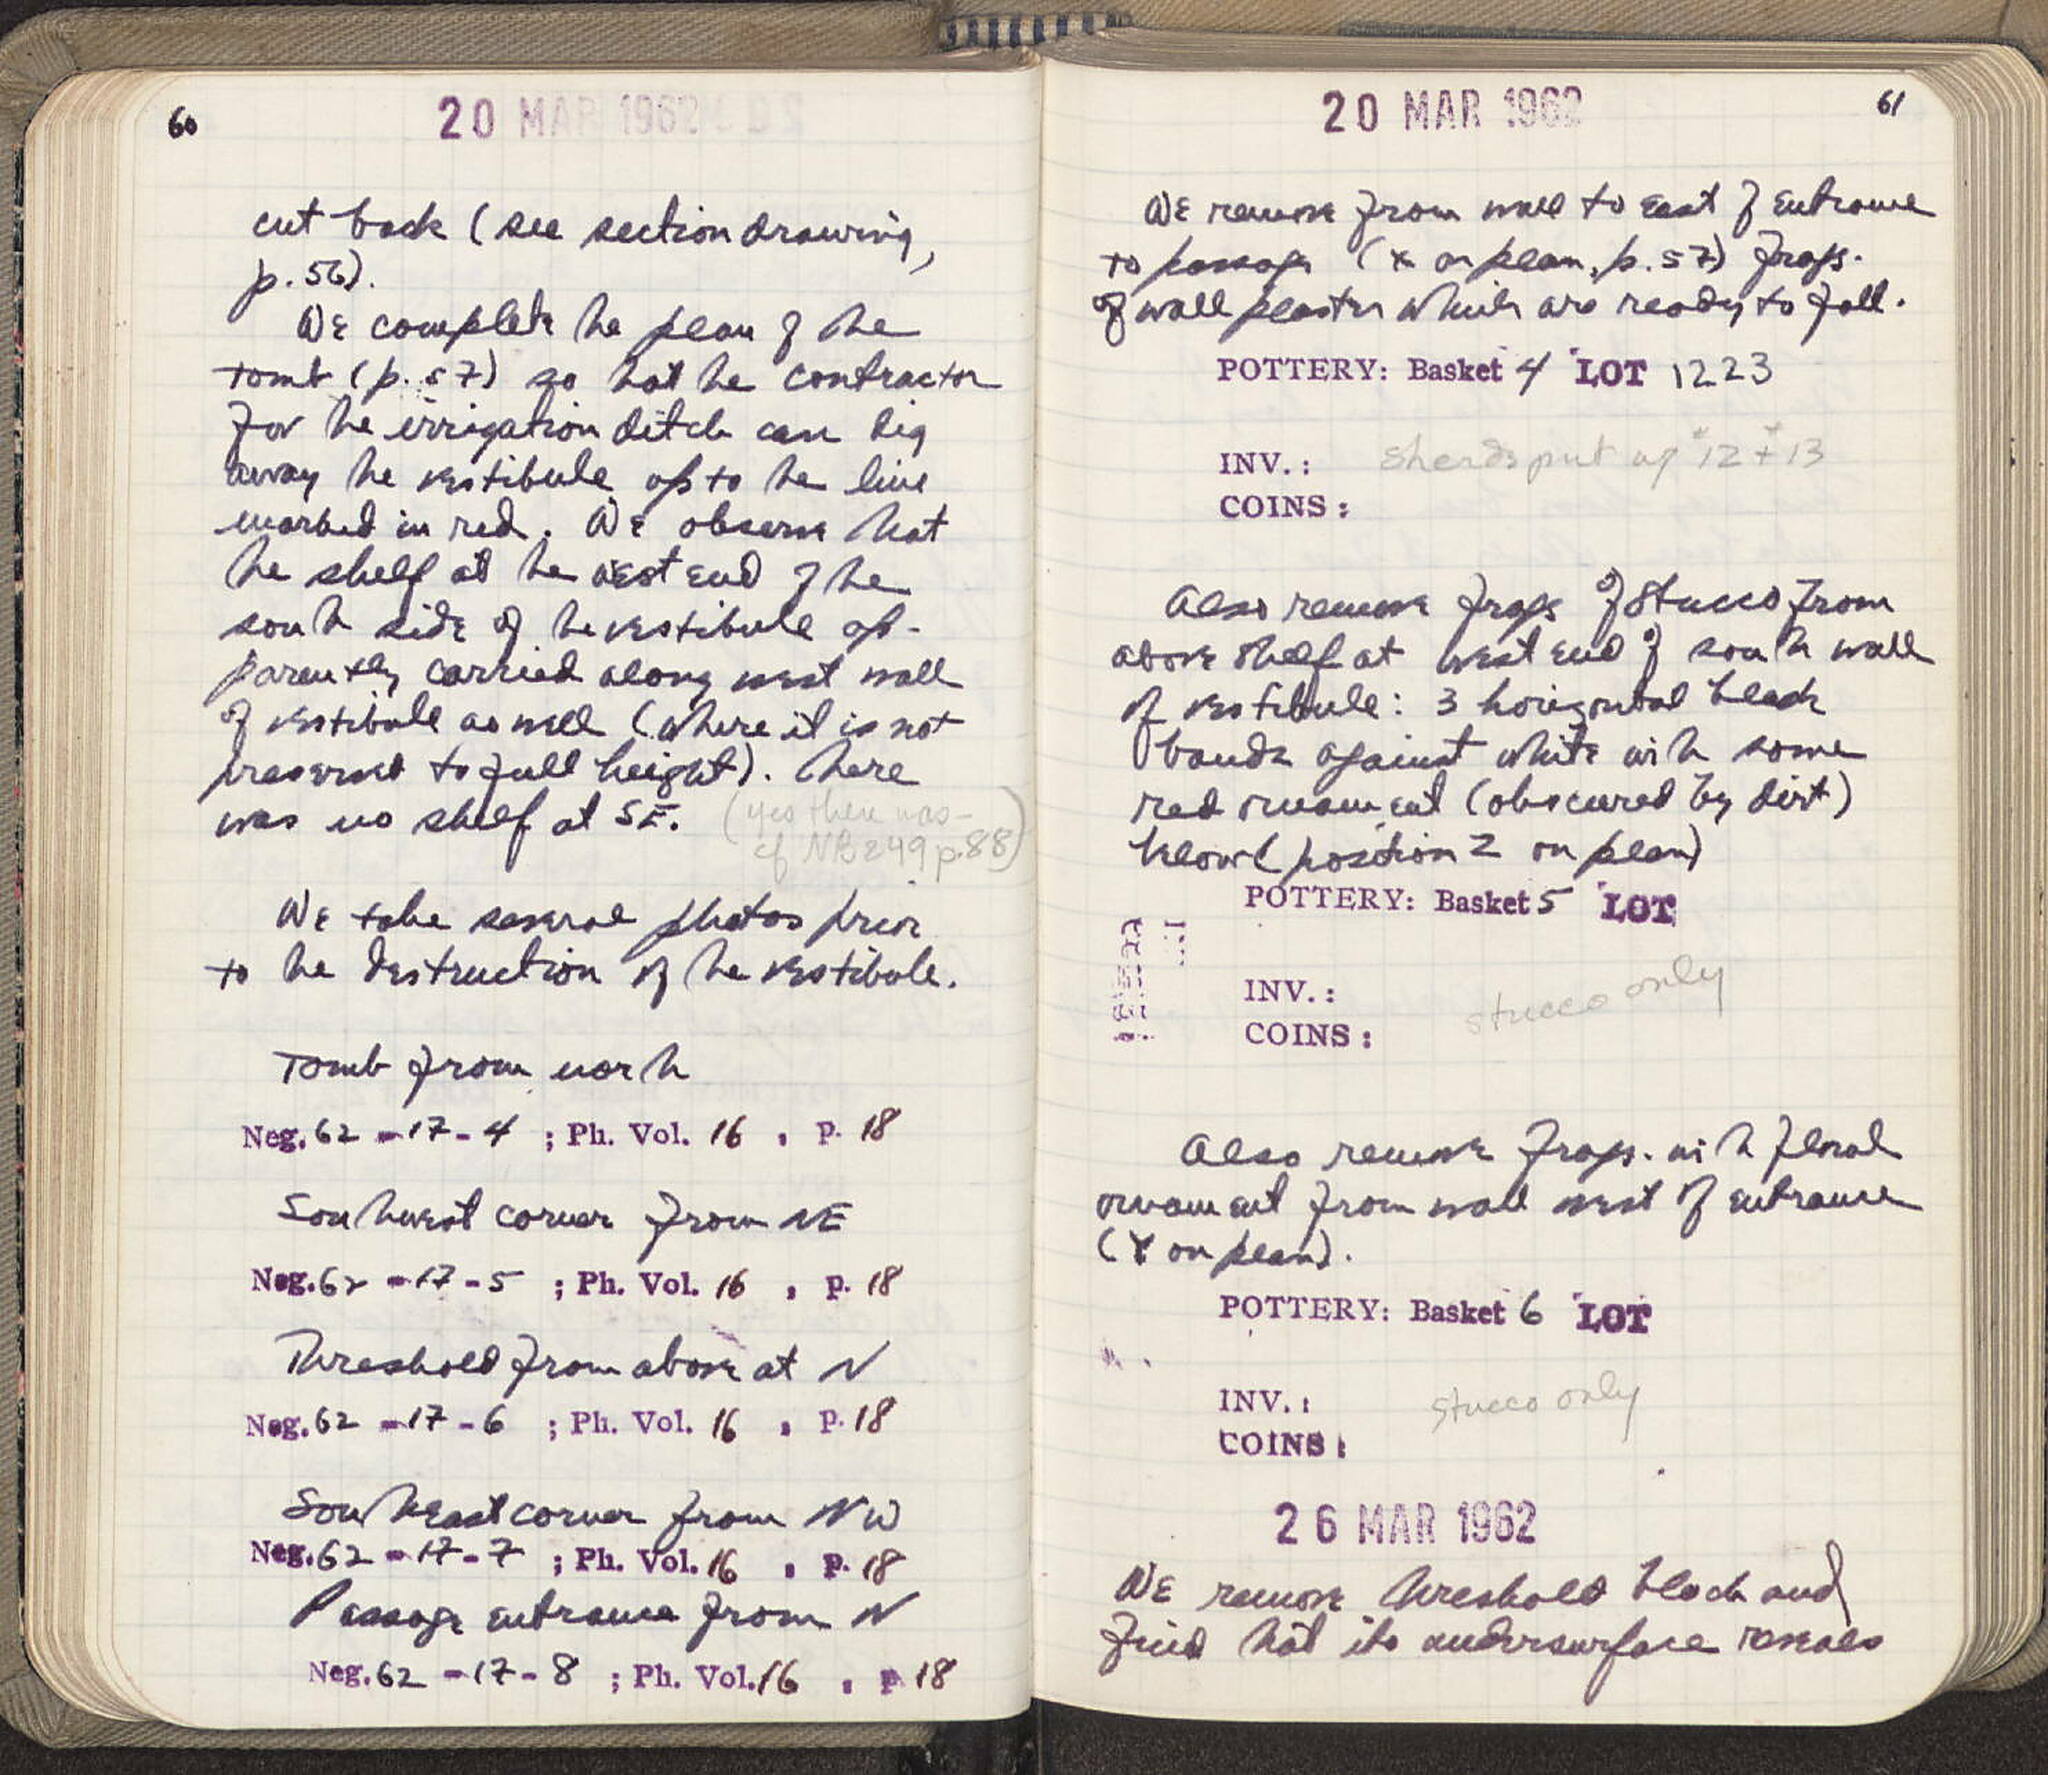 60
20 MAR 1962
cut back (see section drawing,
p. 56).
We complete the plan of the
tomb (p. 57) so that the contractor
for the irrigation ditch can dig
away the vestibule up to the line
marked in red. We observe that
the shelf at the west end of the
south side of the vestibule ap-
parently carried along west wall
of vestibule as well (where it is not
preserved to full height). There
was no shelf at SE. (yes there was -
cf NB 249 p. 88)
We take several photos prior
to the destruction of the vestibule.
Tomb from north
Neg. 62 - 17 - 4 ; Ph. Vol. 16 , p. 18
Southwest corner from NE
Neg. 62 - 17 - 5 ; Ph. Vol. 16 , p. 18
Threshold from above at N
Neg. 62 - 17 - 6 ; Ph. Vol. 16 , p. 18
Southeast corner from NW
Neg. 62 - 17 - 7 ; Ph. Vol. 16 , p. 18
Passage entrance from N
Neg. 62 - 17 - 8 ; Ph. Vol. 16 , p 18
20 MAR 1962
61
We remove from wall to east of entrance
to passage (x on plan, p. 57) frags.
of wall plaster which are ready to fall.
POTTERY: Basket 4 LOT 1223
INV. : sherds put w/ #12 + #13
COINS :
Also remove frags of stucco from
above shelf at west end of south wall
of vestibule: 3 horizontal black
bands against white with some
red ornament (obscured by dirt)
below (position Z on plan)
POTTERY: Basket 5 LOT
INV. :
stucco only
COINS :
Also remove frags. with floral
ornament from wall west of entrance
(Y on plan).
POTTERY: Basket 6 LOT
INV. : stucco only
COINS :
26 MAR 1962
We remove threshold block and
find that its undersurface reveals